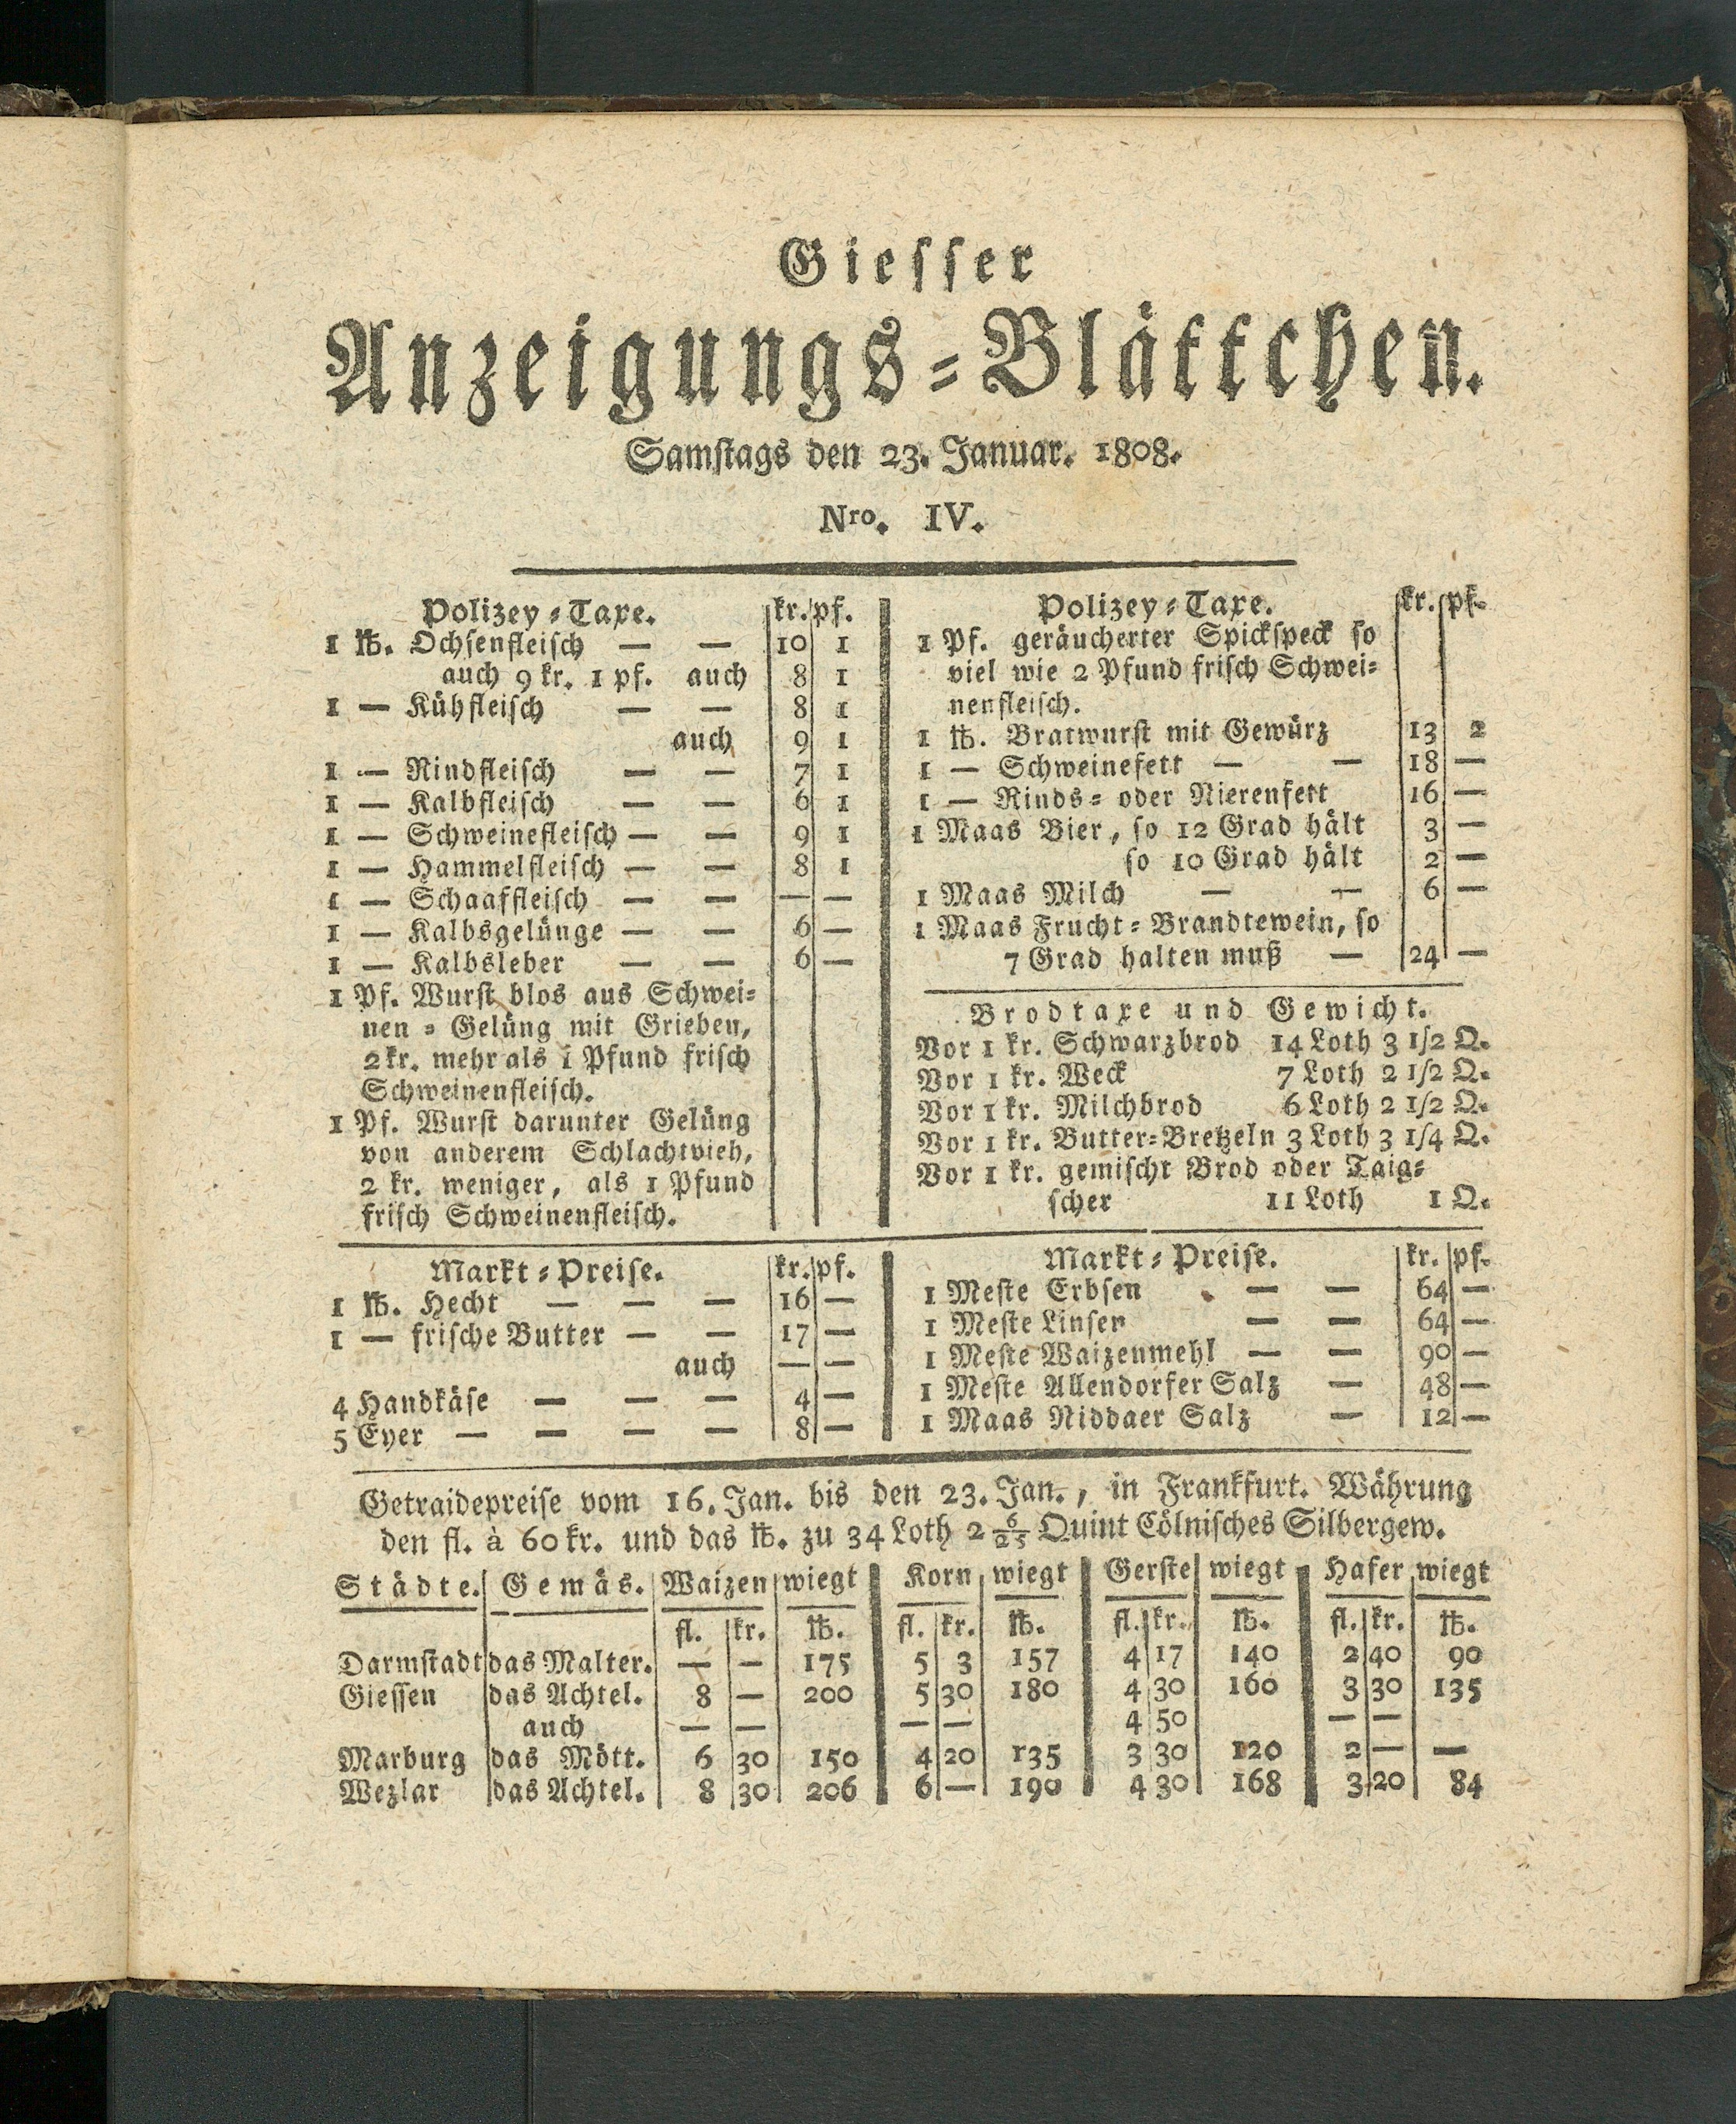 Giesser
Anzeigungs-Blättchen.
Samstags den 23. Januar. 1808.
Nro. IV.
Polizey-Taxe. kr. pf.
1 ℔. Ochsenfleisch — — 10 1
auch 9 kr. 1 pf. auch 8 1
1 — Kühfleisch — — 8 1
auch 9 1
1 — Rindfleisch — — 7 1
1 — Kalbfleisch — — 6 1
1 — Schweinefleisch — — 9 1
1 — Hammelfleisch — — 8 1
1 — Schaaffleisch — — — —
1 — Kalbsgelünge — — 6 —
1 — Kalbsleber — — 6 —
1 Pf. Wurst blos aus Schwei-
nen-Gelüng mit Grieben,
2 kr. mehr als 1 Pfund frisch
Schweinenfleisch.
1 Pf. Wurst darunter Gelüng
von anderem Schlachtvieh,
2 kr. weniger, als 1 Pfund
frisch Schweinenfleisch.
Polizey-Taxe. kr. pf.
1 Pf. geräucherter Spickspeck so
viel wie 2 Pfund frisch Schwei-
nenfleisch.
1 ℔. Bratwurst mit Gewürz 13 2
1 — Schweinefett — — 18 —
1 — Rinds- oder Nierenfett 16 —
1 Maas Bier, so 12 Grad hält 3 —
so 10 Grad hält 2 —
1 Maas Milch — — 6 —
1 Maas Frucht-Brandtewein, so
7 Grad halten muß — 24 —
Brodtaxe und Gewicht.
Vor 1 kr. Schwarzbrod 14 Loth 3 1/2 Q.
Vor 1 kr. Weck 7 Loth 2 1/2 Q.
Vor 1 kr. Milchbrod 6 Loth 2 1/2 Q.
Vor 1 kr. Butter-Bretzeln 3 Loth 3 1/4 Q.
Vor 1 kr. gemischt Brod oder Taig-
scher 11 Loth 1 Q.
Markt-Preise. kr. pf.
1 ℔. Hecht — — — 16 —
1 — frische Butter — — 17 —
auch — —
4 Handkäse — — — 4 —
5 Eyer — — — — 8 —
Markt-Preise. kr. pf.
1 Meste Erbsen — — 64 —
1 Meste Linsen — — 64 —
1 Meste Waizenmehl — — 90 —
1 Meste Allendorfer Salz — 48 —
1 Maas Niddaer Salz — 12 —
Getraidepreise vom 16. Jan. bis den 23. Jan., in Frankfurt. Währung
den fl. à 60 kr. und das ℔. zu 34 Loth 2 6/25 Quint Cölnisches Silbergew.
Städte. Gemäs. Waizen wiegt Korn wiegt Gerste wiegt Hafer wiegt
fl. kr. ℔. fl. kr. ℔. fl. kr. ℔. fl. kr. ℔.
Darmstadt das Malter. — — 175 5 3 157 4 17 140 2 40 90
Giessen das Achtel. 8 — 200 5 30 180 4 30 160 3 30 135
auch — — — — 4 50 — —
Marburg das Mött. 6 30 150 4 20 135 3 30 120 2 — —
Wezlar das Achtel. 8 30 206 6 — 190 4 30 168 3 20 84